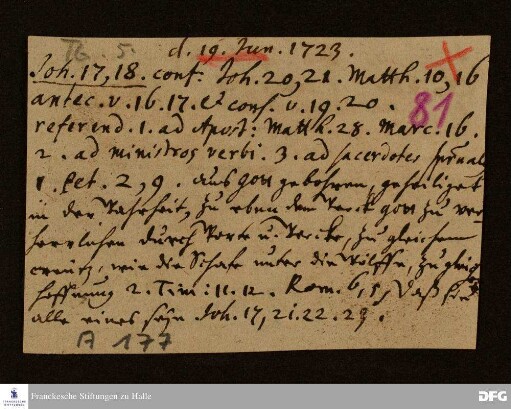 TG. 5.
d. 19. Jun. 1723.
Joh. 17, 18. conf. Joh. 20, 21. Matth. 10, 16
antec. v. 16. 17. et cons. v. 19. 20.
81
referend. 1. ad Apost: Matth. 28. Marc. 16.
2. ad ministros verbi. 3. ad sacerdotes
1. Pet. 2, 9. aus Gott gebohren, geheiliget
in der Wahrheit, zu eben dem Werck Gott zu ver-
herrlichen durch Worte u. Wercke, zu gleichem
creutz, wie die Schafe unter die Wölffe, zu gleicher
Hoffnung 2. Tim: 11. 12. Rom. 6, 5, daß sie
alle eines seyn Joh. 17, 21. 22. 23.
A 177
Franckesche Stiftungen zu Halle
DFG